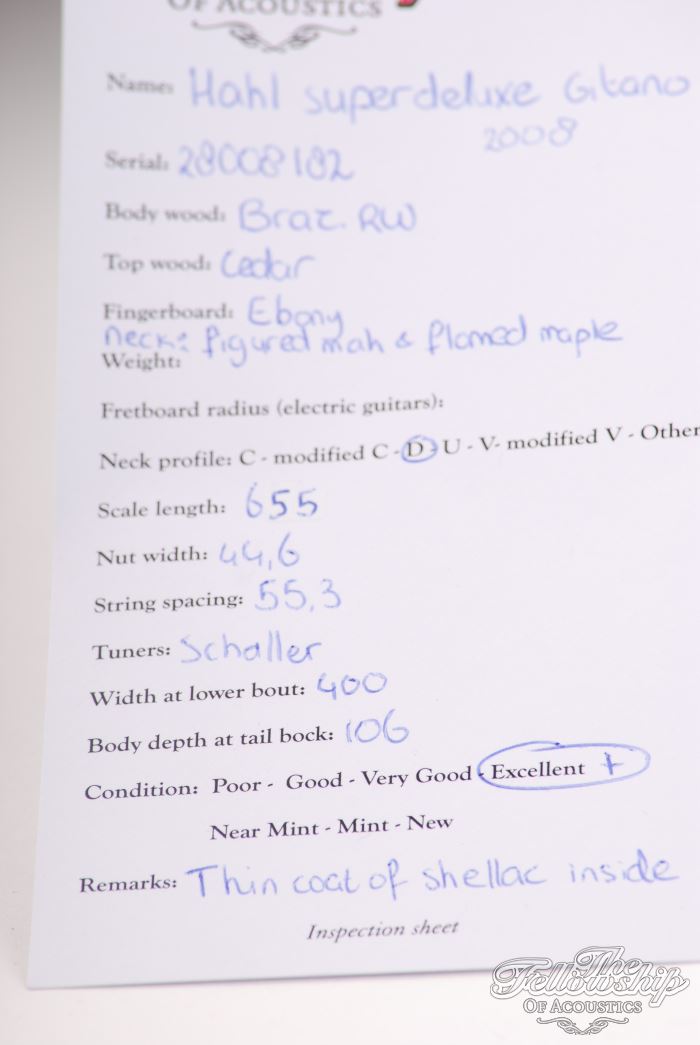 OF ACOUSTICS
Name: Hahl superdeluxe Gitano
2008
Serial: 28008182
Body wood: Braz. RW
Top wood: Cedar
Fingerboard: Ebony
neck: figured mah & flamed maple
Weight:
Fretboard radius (electric guitars):
Neck profile: C - modified C - D - U - V- modified V - Other
Scale length: 655
Nut width: 44,6
String spacing: 55,3
Tuners: Schaller
Width at lower bout: 400
Body depth at tail bock: 106
Condition: Poor - Good - Very Good - Excellent +
Near Mint - Mint - New
Remarks: Thin coat of shellac inside
Inspection sheet
The
Fellowship
OF ACOUSTICS